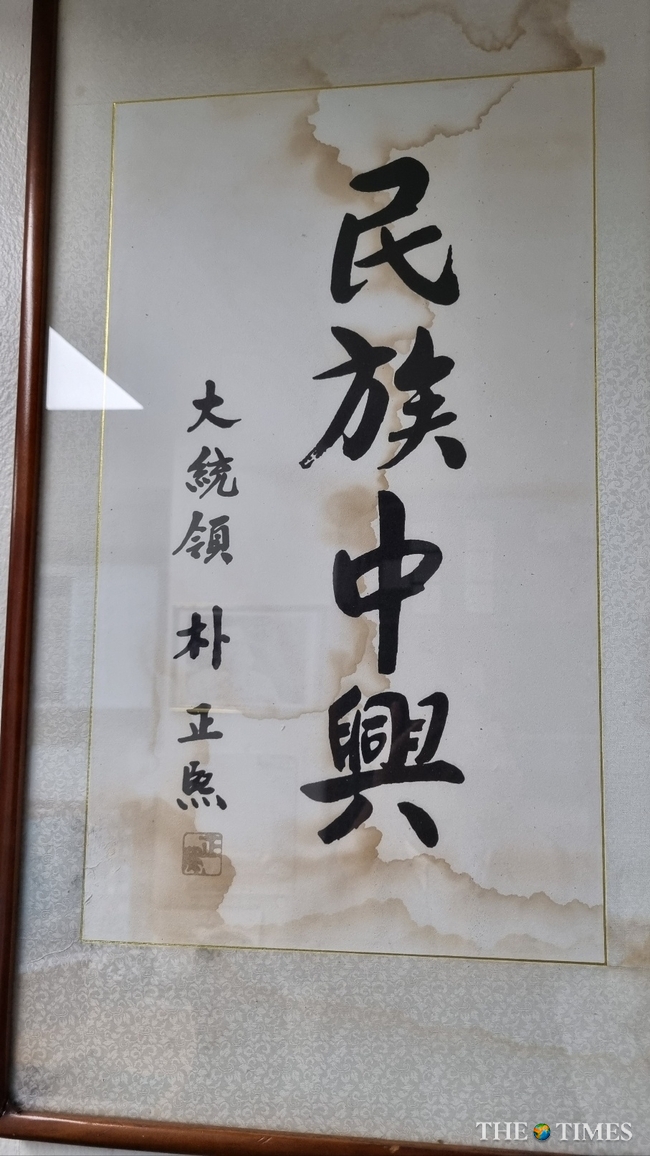 民族中興
大統領 朴正熙
THE TIMES